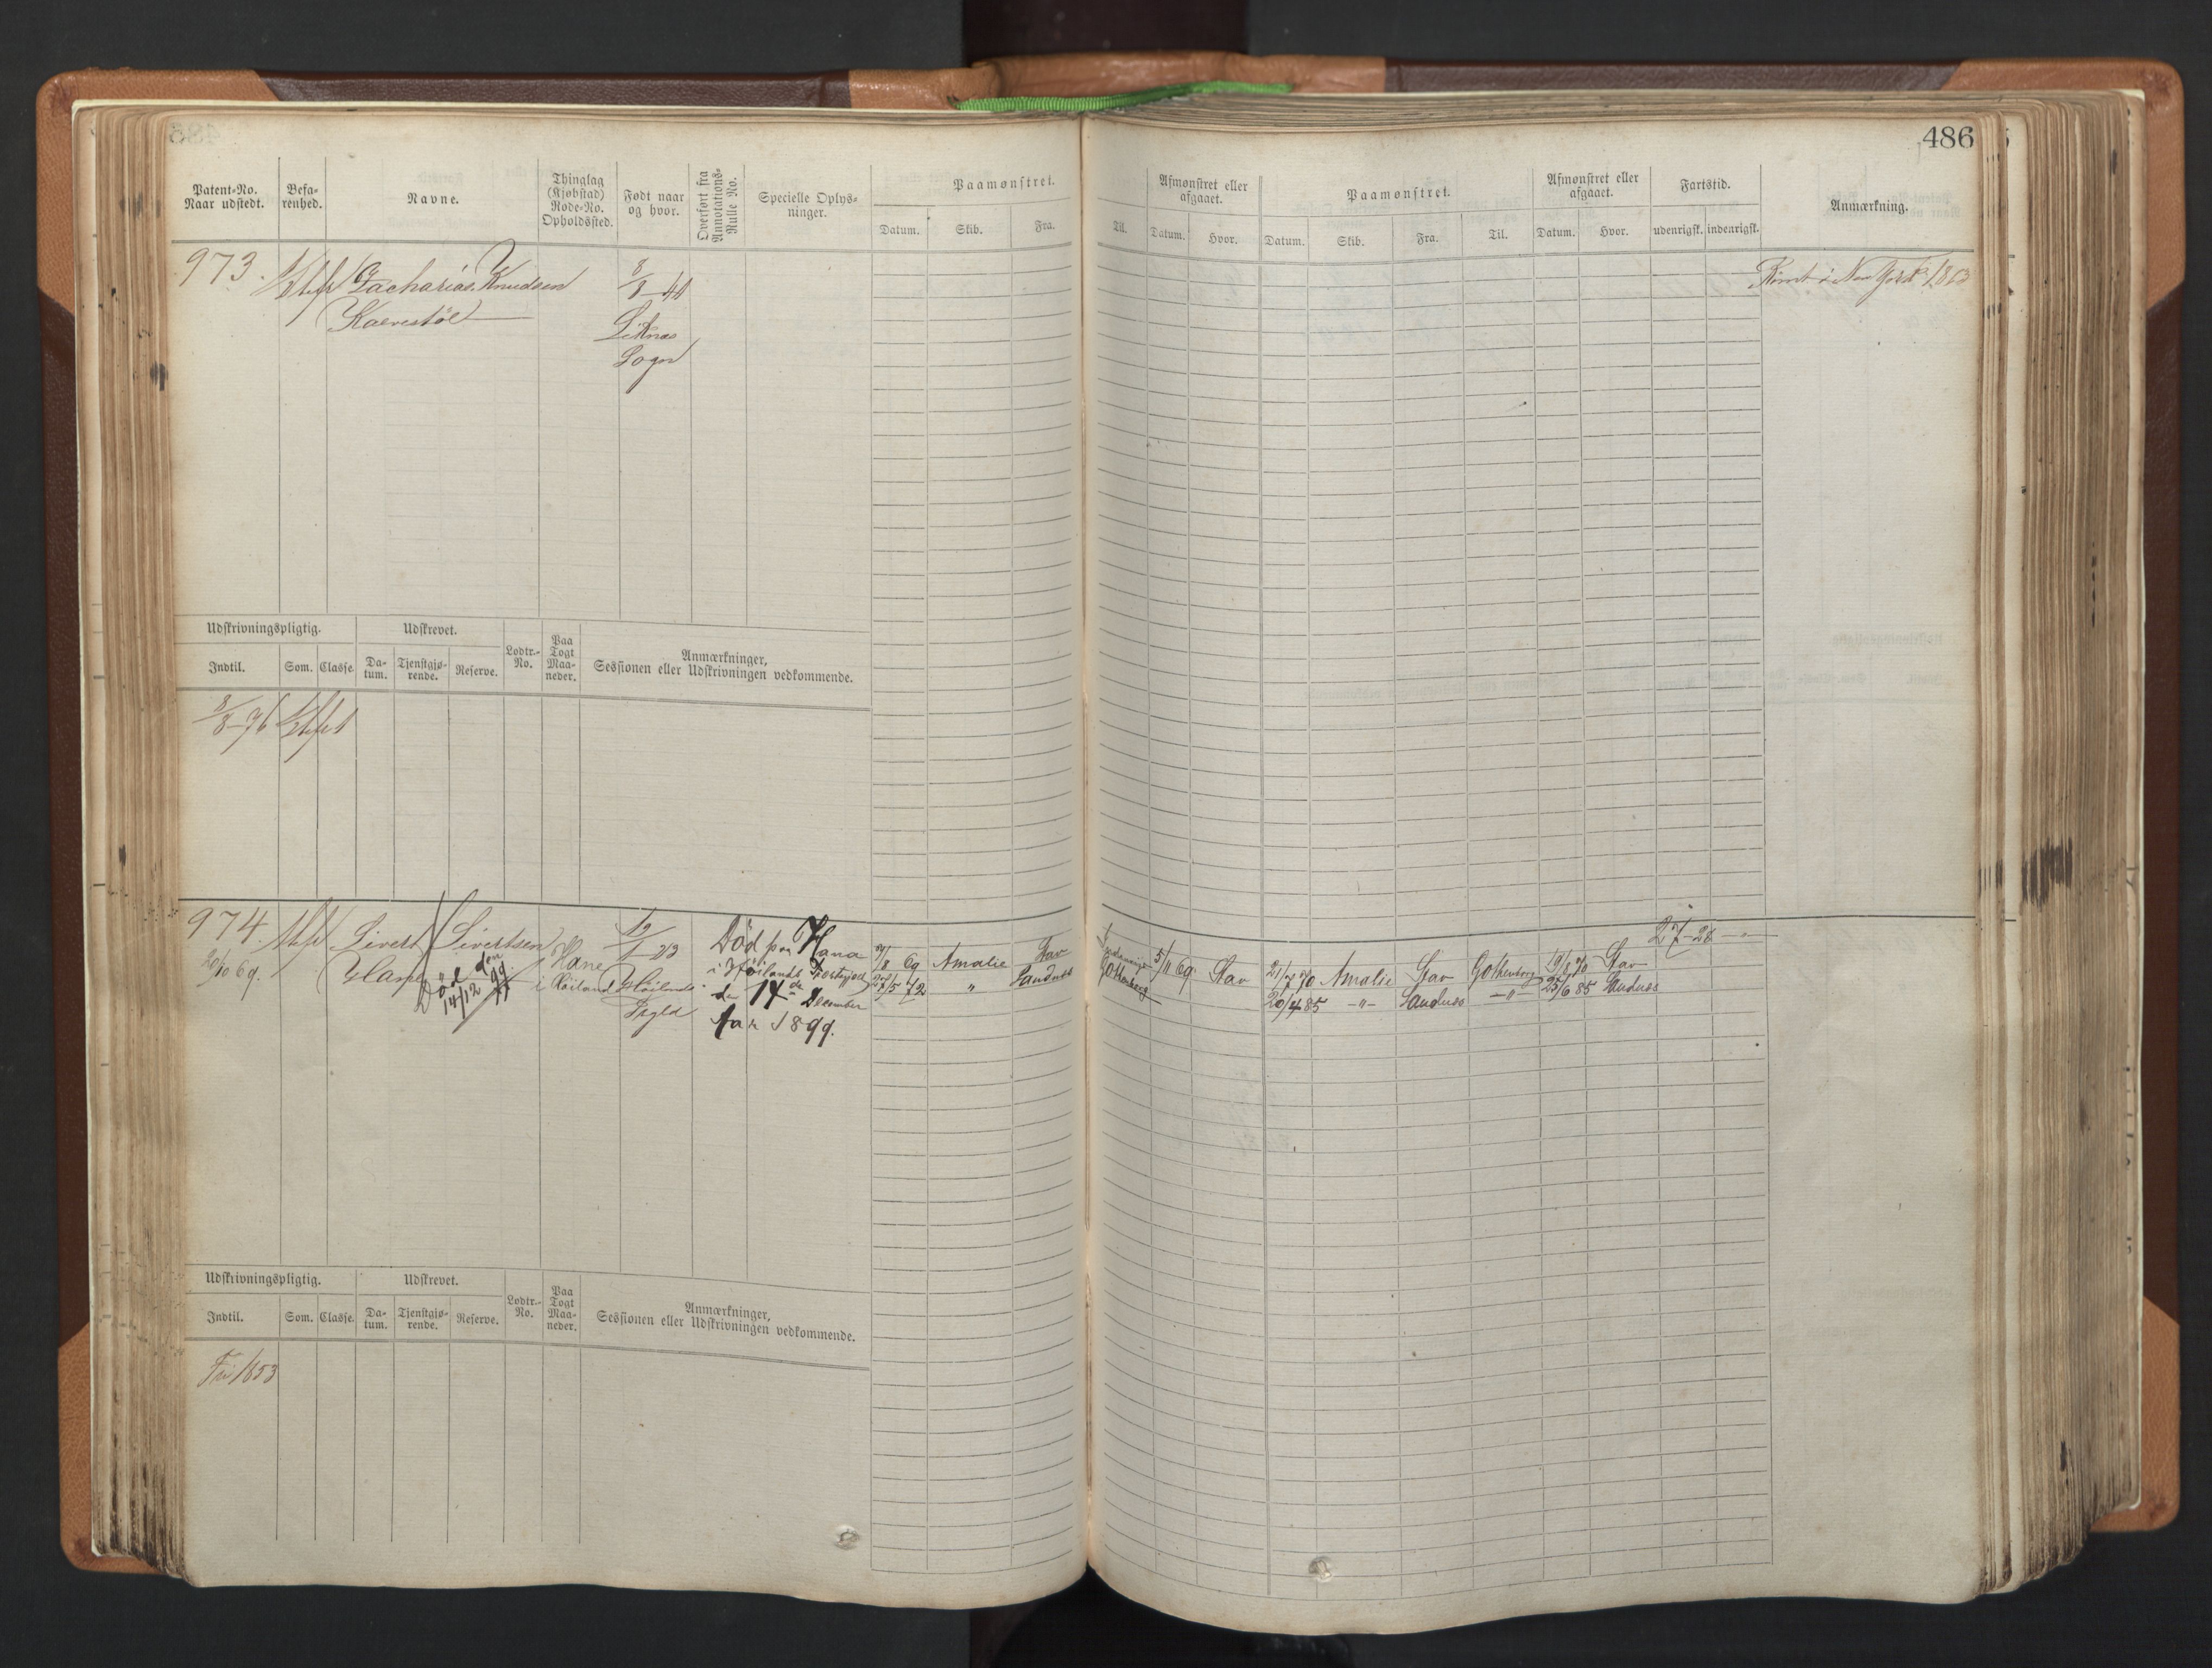 486
Patent-No.
Naar udstedt.
Befa-
renhed.
Navne.
Thinglag
(Kjøbstad)
Rode-No.
Opholdssted.
Født naar
og hvor.
Overført fra
Annotations-
Rulle No.
Specielle Oplys-
ninger.
Paamønstret.
Datum.
Skib.
Fra.
Til.
Afmønstret eller
afgaaet.
Datum.
Hvor.
Paamønstret.
Datum.
Skib.
Fra.
Til.
Afmønstret eller
afgaaet.
Datum.
Hvor.
Fartstid.
udenrigsk.
indenrigsk.
Anmærkning.
973.
Zacharias Knudsen
8/8-44
Sogn
Rømt i New York 1863
Udskrivningspligtig.
Indtil.
Som.
Classe.
Udskrevet.
Da-
tum.
Tjenstgjø-
rende.
Reserve.
Lodtr.-
No.
Paa
Togt
Maa-
neder.
Anmærkninger,
Sessionen eller Udskrivningen vedkommende.
8/8-76
974.
20/10 69.
Sivert Sivertsen
Hane
Død den
14/12 99
Hane
i Høiland
Høilands
Prgld
Død paa Hana
i Høilands Prestegjeld
de 14de December
Aar 1899.
69 Amalie Stav
27/5 72 " Sandnes
Gothenborg
5/11 69 Stav
21/7 70 Amalie Stav Gothenborg 19/8 70 Stav
20/4 85 -"- Sandnes -"- 25/6 85 Sandnes
27-28
Udskrivningspligtig.
Indtil.
Som.
Classe.
Udskrevet.
Da-
tum.
Tjenstgjø-
rende.
Reserve.
Lodtr.-
No.
Paa
Togt
Maa-
neder.
Anmærkninger,
Sessionen eller Udskrivningen vedkommende.
Fri 1853